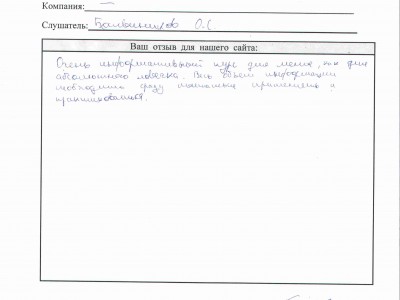 Компания: —
Слушатель: Балабанихов О.С.
Ваш отзыв для нашего сайта:
Очень информативный курс для меня, как для
абсолютного новичка. Весь объем информации
необходимо сразу применять и
практиковаться.